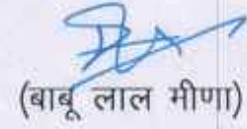 (बाबू लाल मीणा)